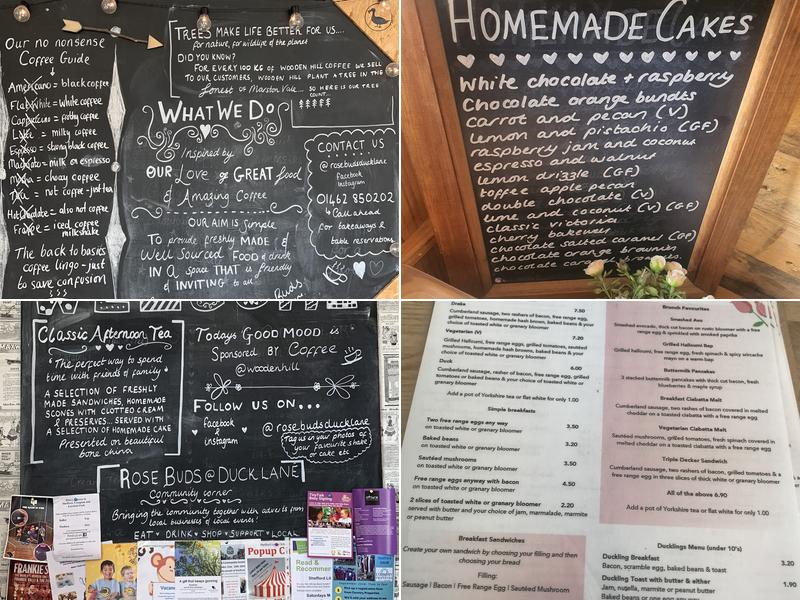 Our no nonsense
Coffee Guide
Americano = black coffee
Flat White = white coffee
Cappuccino = frothy coffee
Latte = milky coffee
Espresso = strong black coffee
Macchiato = milk on espresso
Mocha = chocy coffee
Tea = not coffee - just tea
Hot Chocolate = also not coffee
Frappe = iced coffee
milkshake
The back to basics
coffee lingo - just
to save confusion
TREES MAKE LIFE BETTER FOR US....
for nature, for wildlife & the planet
DID YOU KNOW?
FOR EVERY 100 KG OF WOODEN HILL COFFEE WE SELL
TO OUR CUSTOMERS, WOODEN HILL PLANT A TREE IN THE
Forest of Marston Vale...
SO HERE IS OUR TREE
COUNT...
WHAT WE DO
Inspired by
OUR Love of GREAT food
& Amazing Coffee
OUR AIM IS simple
To provide freshly MADE &
Well Sourced FOOD & drink
IN A SPACE THAT IS friendly
& INVITING to all
CONTACT US
@rosebudsducklane
Facebook
Instagram
01462 850202
Call ahead
for takeaways &
table reservations
HOMEMADE CAKES
White chocolate + raspberry
Chocolate orange bundts
Carrot and pecan (V)
lemon and pistachio (GF)
raspberry jam and coconut
espresso and walnut
lemon drizzle (GF)
toffee apple pecan
double chocolate (V)
lime and coconut (V) (GF)
classic victoria
cherry bakewell
chocolate salted caramel (GF)
chocolate orange brownies
chocolate
Classic Afternoon Tea
"The perfect way to spend
time with friends & family"
A SELECTION OF FRESHLY
MADE SANDWICHES, HOMEMADE
SCONES WITH CLOTTED CREAM
& PRESERVES... SERVED WITH
A SELECTION OF HOMEMADE CAKE
Presented on beautiful
bone china
Todays GOOD MOOD is
Sponsored BY Coffee
@woodenhill
FOLLOW US ON...
Facebook
&
Instagram
@rose.buds.ducklane
Tag us in your photos of
your favourite shake
or cake etc
ROSE BUDS @ DUCK LANE
Community corner
Bringing the community together with adverts from
local businesses & local events!
EAT ♥ DRINK ♥ SHOP ♥ SUPPORT ♥ LOCAL
FRANKIE'S
Popup C
Read &
Recommend
Drake
7.50
Cumberland sausage, two rashers of bacon, free range egg,
grilled tomatoes, homemade hash brown, baked beans & your
choice of toasted white or granary bloomer
Vegetarian (V)
7.20
Grilled Halloumi, free range egg, grilled tomatoes, sautéed
mushrooms, homemade hash brown, baked beans & your
choice of toasted white or granary bloomer
Duck
6.00
Cumberland sausage, rasher of bacon, free range egg, grilled
tomatoes or baked beans & your choice of toasted white
or granary bloomer
Add a pot of Yorkshire tea or flat white for only 1.00
Simple breakfasts
Two free range eggs any way 3.50
on toasted white or granary bloomer
Baked beans 3.20
on toasted white or granary bloomer
Sautéed mushrooms 3.50
on toasted white or granary bloomer
Free range eggs anyway with bacon 4.50
on toasted white or granary bloomer
2 slices of toasted white or granary bloomer 2.20
served with butter and your choice of jam, marmalade, marmite
or peanut butter
Breakfast Sandwiches
Create your own sandwich by choosing your filling and then
choosing your bread
Filling:
Sausage | Bacon | Free Range Egg | Sautéed Mushroom
Brunch Favourites
Smashed Avo
Smashed avocado, thick cut bacon on rustic bloomer with a free
range egg & sprinkled with smoked paprika
Grilled Halloumi Bap
Grilled halloumi, free range egg, fresh spinach & spicy sriracha
mayo on a warm bap
Buttermilk Pancakes
3 stacked buttermilk pancakes with thick cut bacon, fresh
blueberries & maple syrup
Breakfast Ciabatta Melt
Cumberland sausage, two rashers of bacon covered in melted
cheddar on a toasted ciabatta with a free range egg
Vegetarian Ciabatta Melt
Sautéed mushrooms, grilled tomatoes, fresh spinach covered in
melted cheddar on a toasted ciabatta with a free range egg
Triple Decker Sandwich
Cumberland sausage, two rashers of bacon, grilled tomatoes & a
free range egg in three slices of thick white or granary bloomer
All of the above 6.90
Add a pot of Yorkshire tea or flat white for only 1.00
Ducklings Menu (under 10's)
Duckling Breakfast 3.20
Bacon, scramble egg, baked beans & toast
Duckling Toast with butter & either 1.90
Jam, nutella, marmite or peanut butter